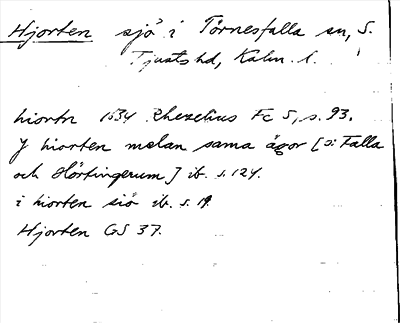 Hjorten sjö i Törnesfalla sn, S.
Tjusts hd, Kalm. l.
hiortn 1634 Rhezelius Fc 5, s. 93.
J hiorten melan sama ägor [ɔ: Falla
och Hörtingerum] ib. s. 124.
i hiorten siö ib. s. 19.
Hjorten GS 37.